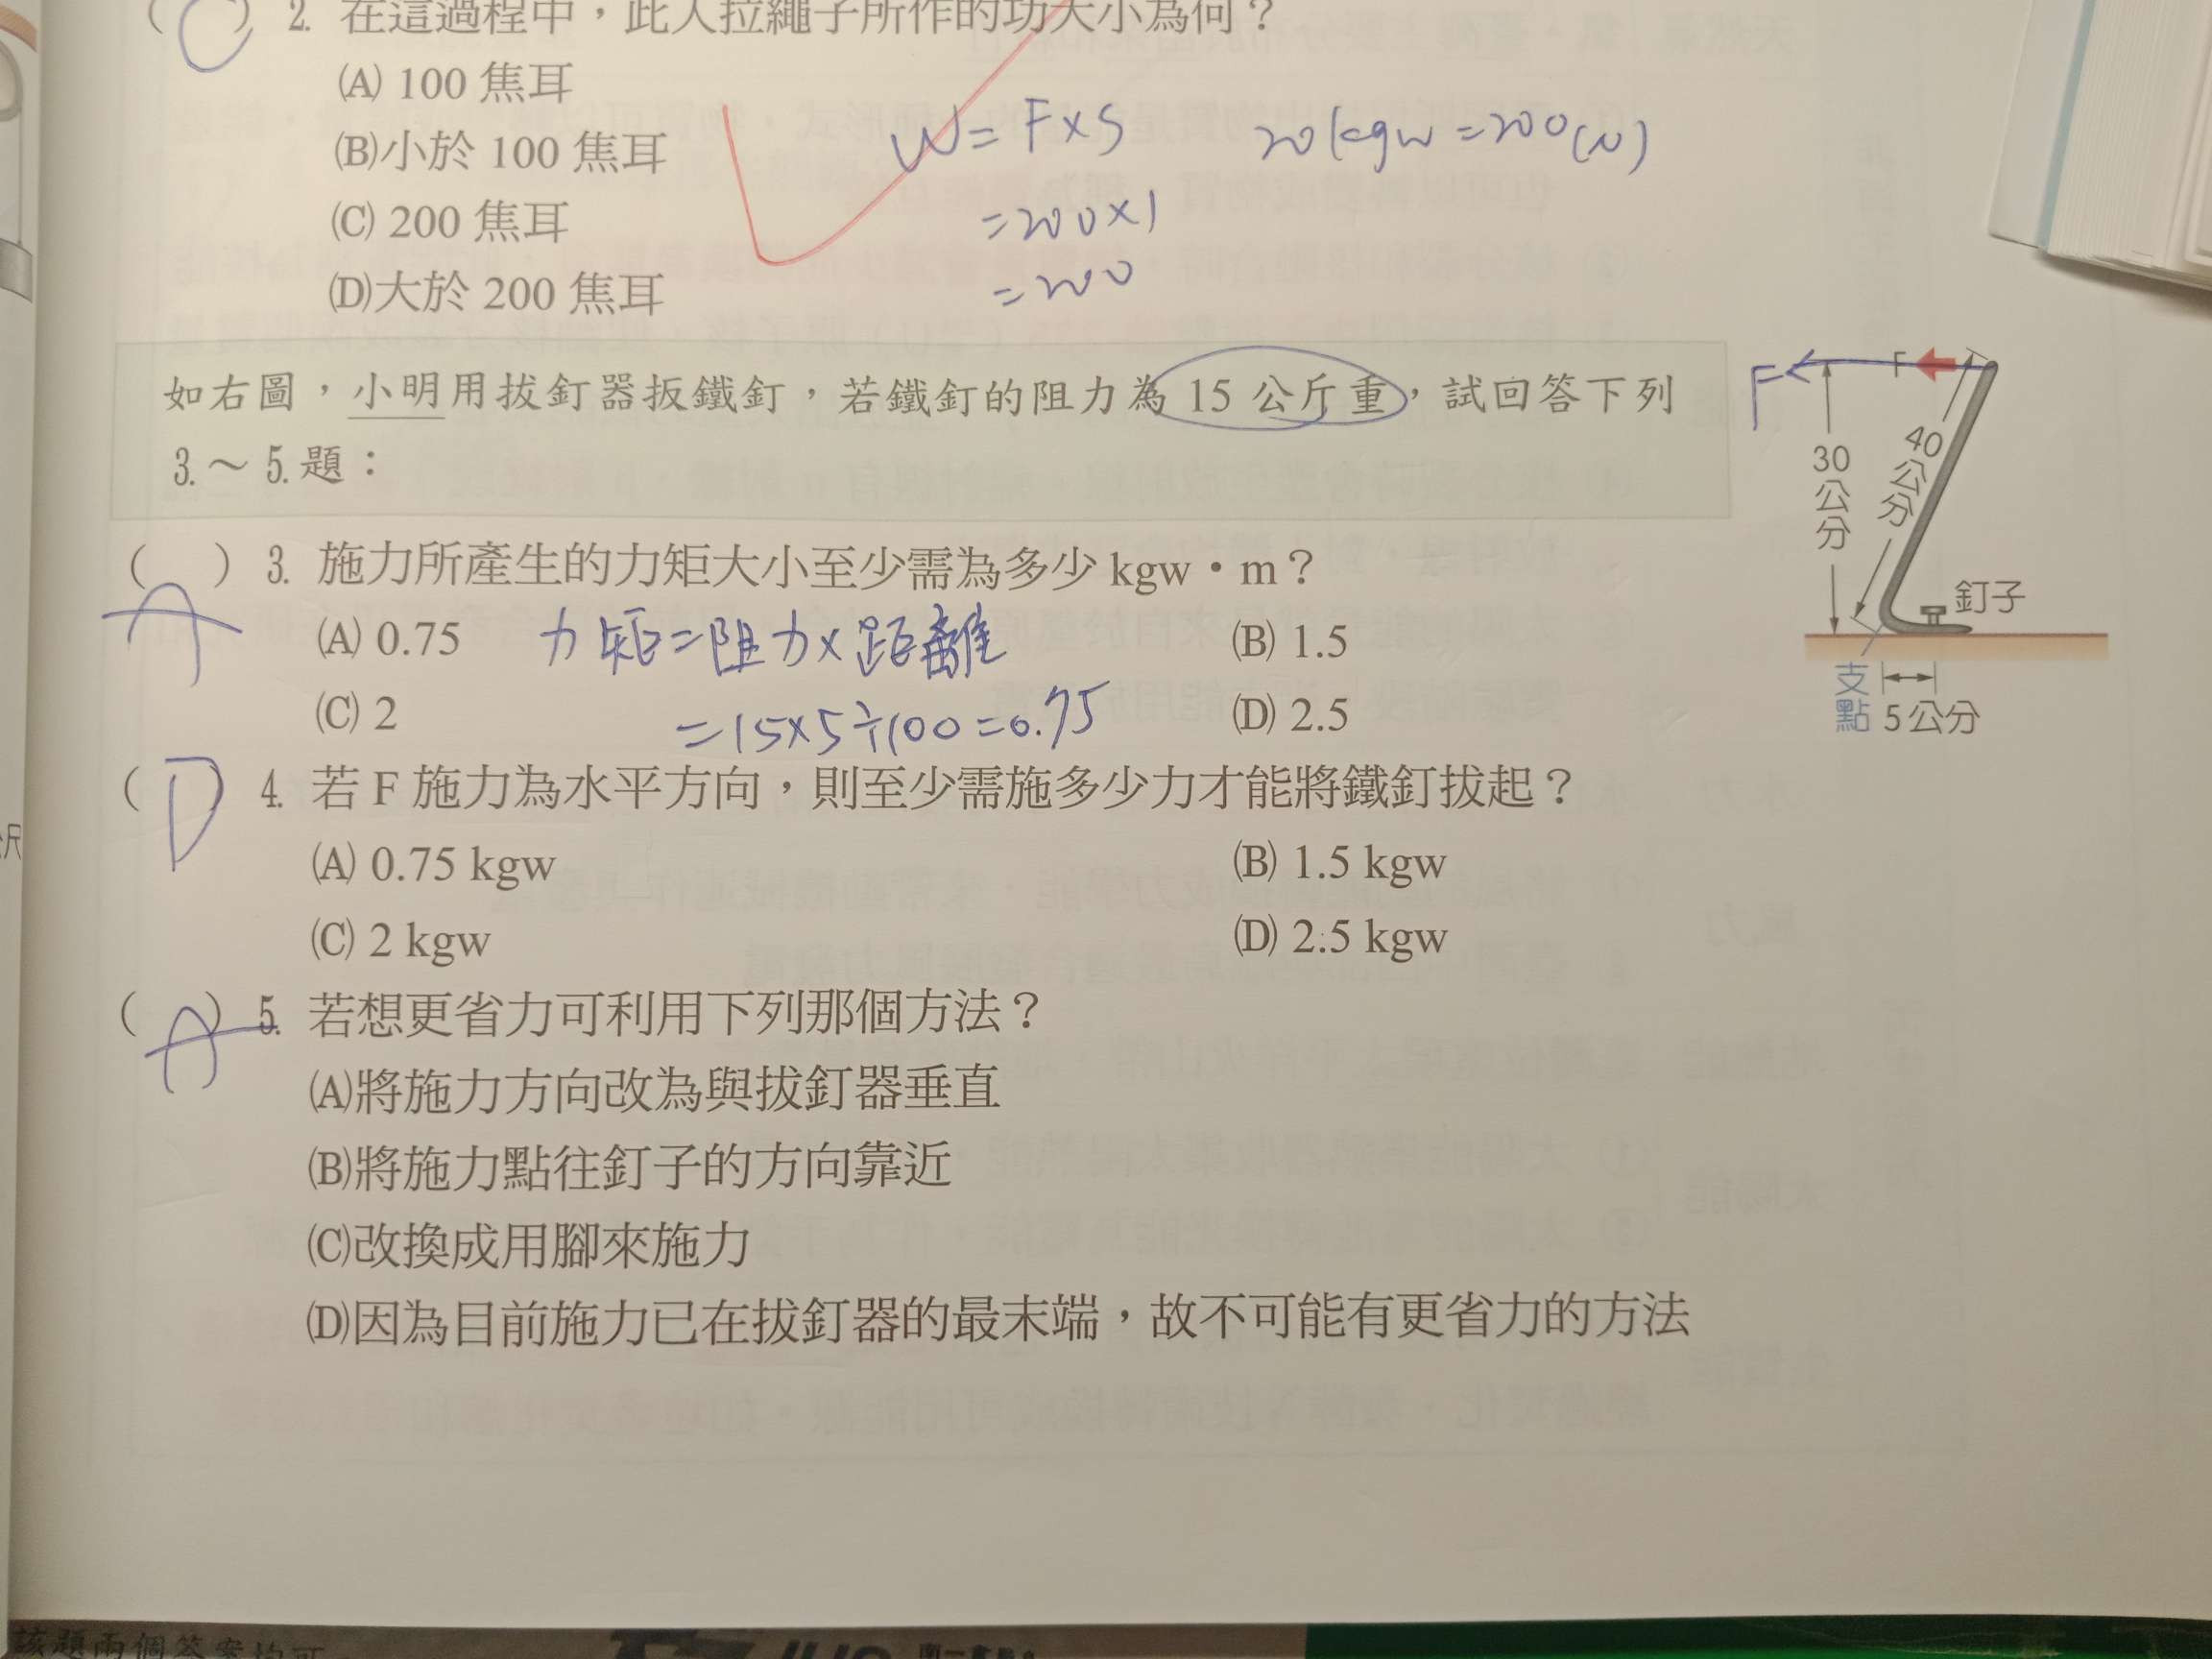 (C) 2. 在這過程中，此人拉繩子所作的功大小為何？
(A) 100 焦耳
(B)小於 100 焦耳
(C) 200 焦耳
(D)大於 200 焦耳
W = F×S 20kgw = 200(N)
= 200×1
= 200
如右圖，小明用拔釘器扳鐵釘，若鐵釘的阻力為 15 公斤重，試回答下列
3.～5.題：
F
F
30公分
40公分
釘子
支點
5公分
(A) 3. 施力所產生的力矩大小至少需為多少 kgw·m？
(A) 0.75 (B) 1.5
力矩=阻力×距離
(C) 2 (D) 2.5
=15×5÷100=0.75
(D) 4. 若 F 施力為水平方向，則至少需施多少力才能將鐵釘拔起？
(A) 0.75 kgw (B) 1.5 kgw
(C) 2 kgw (D) 2.5 kgw
(A) 5. 若想更省力可利用下列那個方法？
(A)將施力方向改為與拔釘器垂直
(B)將施力點往釘子的方向靠近
(C)改換成用腳來施力
(D)因為目前施力已在拔釘器的最末端，故不可能有更省力的方法
該題兩個答案均可